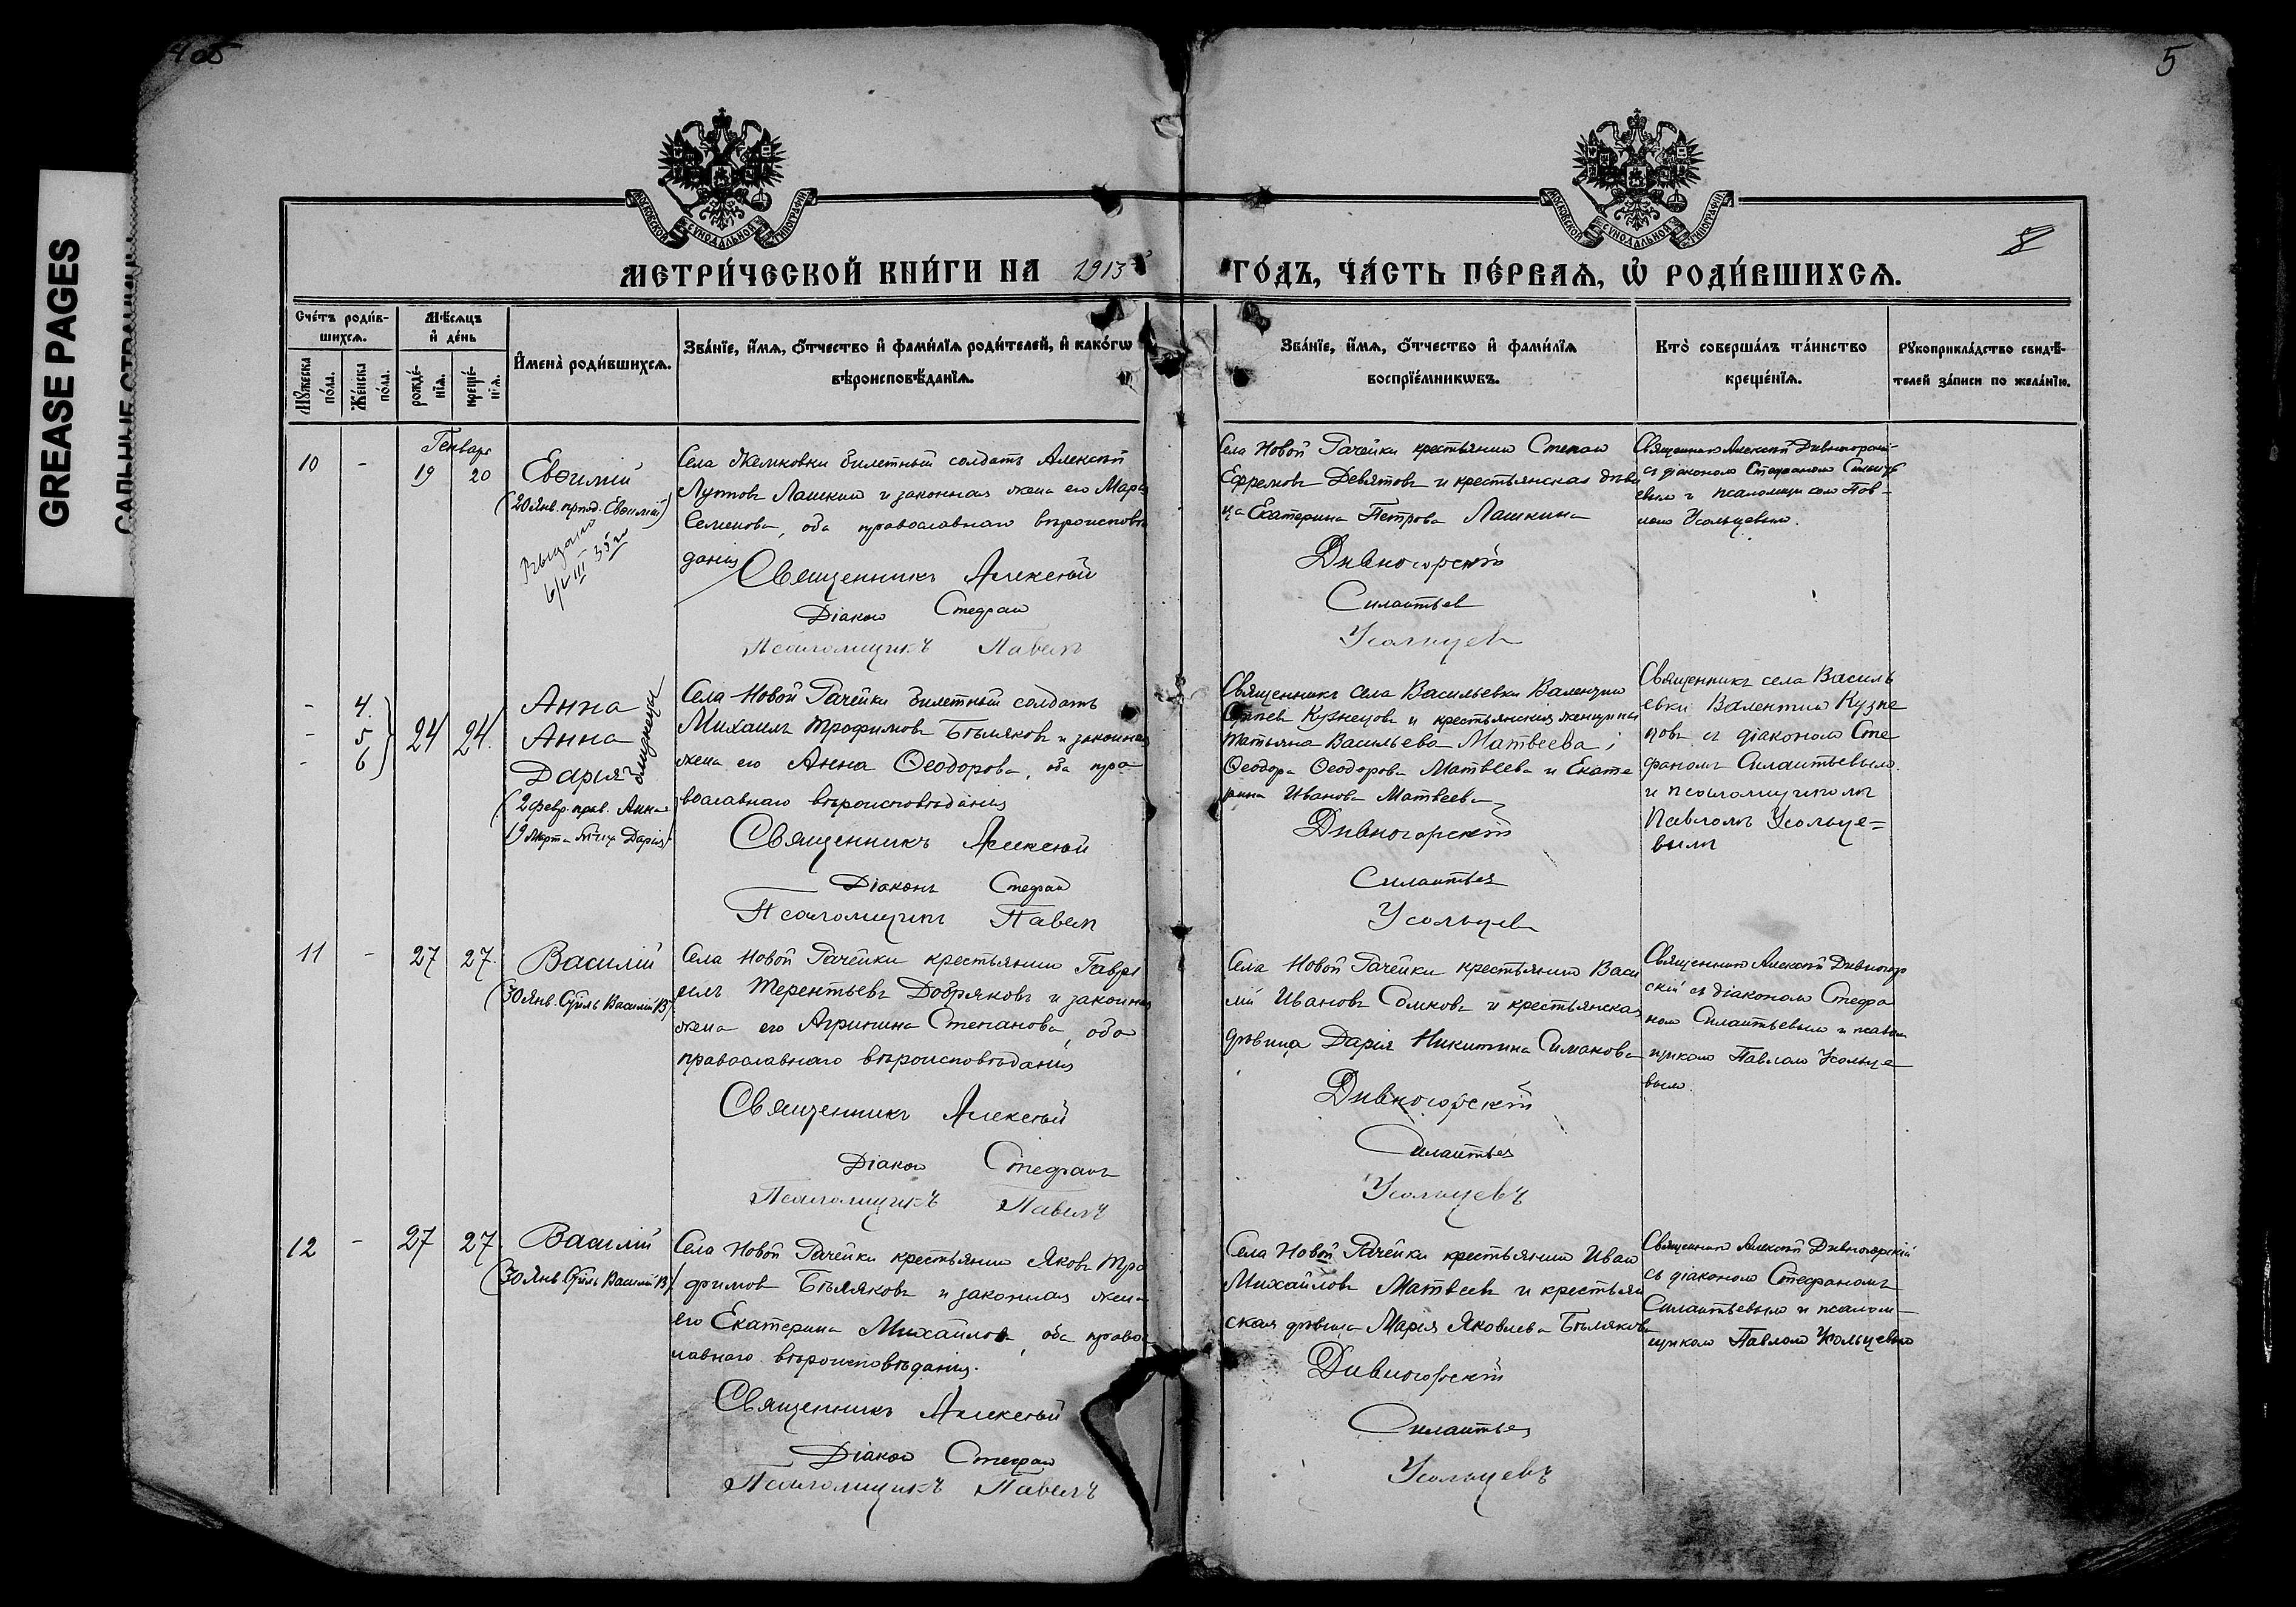 4 об
5
8
GREASE PAGES
МОСКОВСКОЙ СѴНОДАЛЬНОЙ ТИПОГРАФІИ
МОСКОВСКОЙ СѴНОДАЛЬНОЙ ТИПОГРАФІИ
МЕТРИ́ЧЕСКОЙ КНИ́ГИ НА 1913
ГО́ДЪ, ЧА́СТЬ ПЕ́РВАѦ, Ѡ҆ РОДИ́ВШИХСѦ.
Сче́тъ роди́в-
шихсѧ.
Мꙋжеска
по́ла.
Же́нска
по́ла.
Мѣ́сѧцъ
и҆ де́нь
рожде́-
нїѧ.
креще́-
нїѧ.
И҆мена̀ роди́вшихсѧ.
Зва́нїе, и҆́мѧ, ѻ҆́тчество и҆ фами́лїѧ роди́телей, и҆ како́гѡ
вѣроисповѣ́данїѧ.
Зва́нїе, и҆́мѧ, ѻ҆́тчество и҆ фами́лїѧ
воспрїе́мникѡвъ.
Кто̀ соверша́лъ та́инство
креще́нїѧ.
Рꙋкоприкла́дство свидѣ́-
телей за́писи по жела́нїю.
Генварь
10 - 19 20
Евѳимій
(20 Янв. препод. Евѳимій)
Выдано
Села Жемковки билетный солдатъ Алексѣй
Лашкин и законная жена его Марія
Семенова, оба православнаго вѣроисповѣ
данія
Священникъ Алексѣй
Діакон Стефан
Псаломщикъ Павелъ
Села Новой Рачейки крестьянин Степан
Ефремовъ Девятовъ и крестьянская дѣви
ца Екатерина Петрова Лашкина
Дивногорскій
Силантьев
Усольцев
Священник Алексѣй Дивногорскій
съ діаконом Стефаном Силантъ
евым и псаломщиком Пав-
лом Усольцевым.
- 4.
- 5
- 6
24 24.
Анна
Анна
Дарья
близнецы
(2 февр. прав. Анна
19 Марта м-цы Дарія)
Села Новой Рачейки билетный солдатъ
Михаилъ Трофимовъ Бѣляковъ и законная
жена его Анна Ѳеодорова, оба пра
вославнаго вѣроисповѣданія
Священникъ Алексѣй
Діаконъ Стефан
Псаломщикъ Павел
Священникъ села Васильевки Валентин
Кузнецовъ и крестьянская женщина
Татьяна Васильева Матвеева;
Ѳеодора Ѳеодорова Матвѣева и Екате
рина Иванова Матвеева
Дивногорскій
Силантьев
Усольцев
Священникъ села Василь
евки Валентин Кузне
цовъ съ діаконом Сте
фаномъ Силантьевым
и псаломщикомъ
Павломъ Усольце=
вымъ
11 - 27 27.
Василій
(30 Янв. Свѣль Василій В.)
Села Новой Рачейки крестьянин Гаврі
илъ Терентьевъ Добряковъ и законная
жена его Агрипина Степанова, оба
православнаго вѣроисповѣданія
Священникъ Алексѣй
Діакон Стефанъ
Псаломщикъ Павелъ
Села Новой Рачейки крестьянин Васи
лій Ивановъ Сомковъ и крестьянская
дѣвица Дарія Никитина Симакова
Дивногорскій
Силантьев
Усольцевъ
Священник Алексѣй Дивногор
скій съ діаконом Стефа
ном Силантьевым и псалом
щиком Павлом Усольце
вым.
12 - 27 27
Василій
(30 Янв. Свѣль Василій В.)
Села Новой Рачейки крестьянин Яковъ Тро
фимов Бѣляковъ и законная жена
его Екатерина Михайлова, оба правос
лавнаго вѣроисповѣданія.
Священникъ Алексѣй
Діакон Стефан
Псаломщикъ Павелъ
Села Новой Рачейки крестьянин Иван
Михайловъ Матвеевъ и крестьян
ская дѣвица Марія Яковлева Бѣлякова
Дивногорскій
Силантьев
Усольцевъ
Священник Алексѣй Дивногорскій
съ діаконом Стефаномъ
Силантьевым и псалом-
щиком Павлом Усольцевым